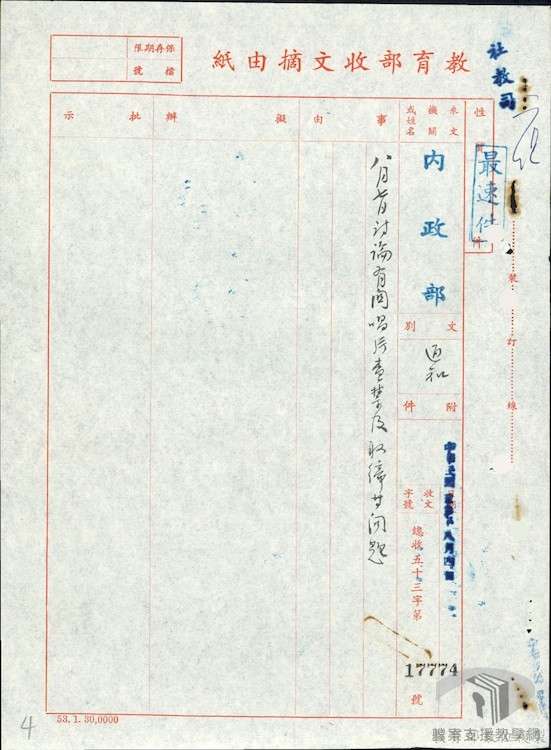 保存期限
檔號
教育部收文摘由紙
社教司
性質
最速件
件
來文機關或姓名
內政部
文別
通知
附件
收文
字號
總收五十三字第
17774
號
事由
八月七日討論有關唱片查禁及取締等問題
擬辦
批示
裝
訂
線
53.1.30,0000
4
檔案支援教學網